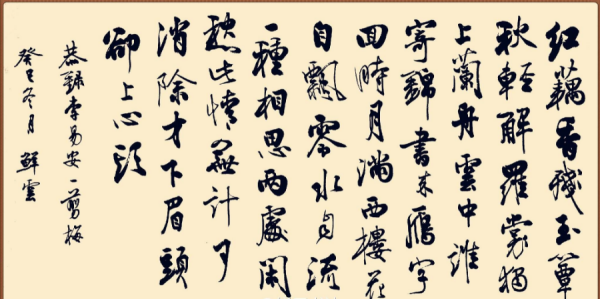 紅藕香殘玉簟
秋輕解羅裳獨
上蘭舟雲中誰
寄錦書來鴈字
回時月滿西樓花
自飄零水自流
一種相思兩處閑
愁此情無計可
消除才下眉頭
卻上心頭
恭錄李易安一剪梅
癸巳冬月 鮮雲